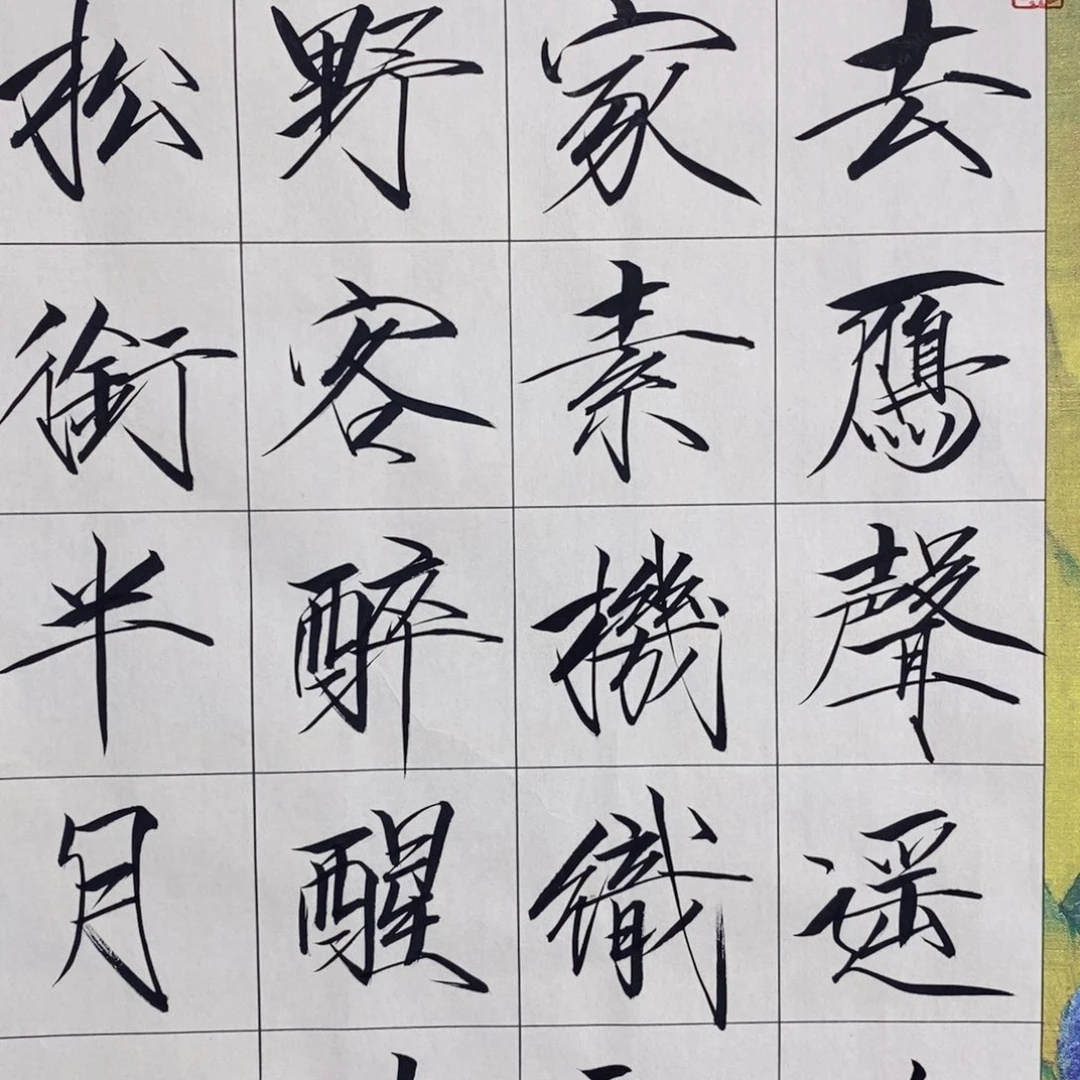 去鴈聲遥
家素機織
野客醉醒
松銜半月